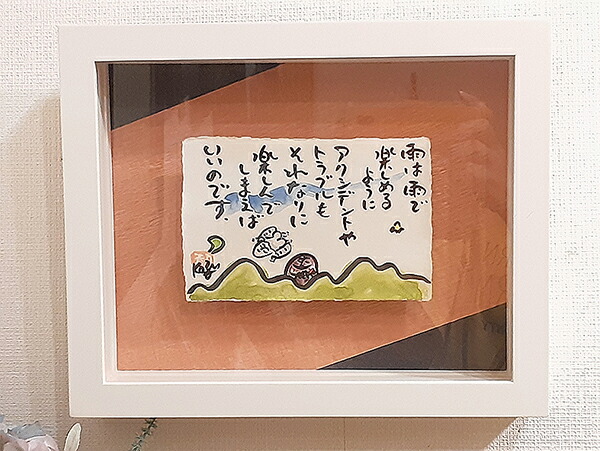 雨は雨で
楽しめる
ように
アクシデントや
トラブルも
それなりに
楽しんで
しまえば
いいのです